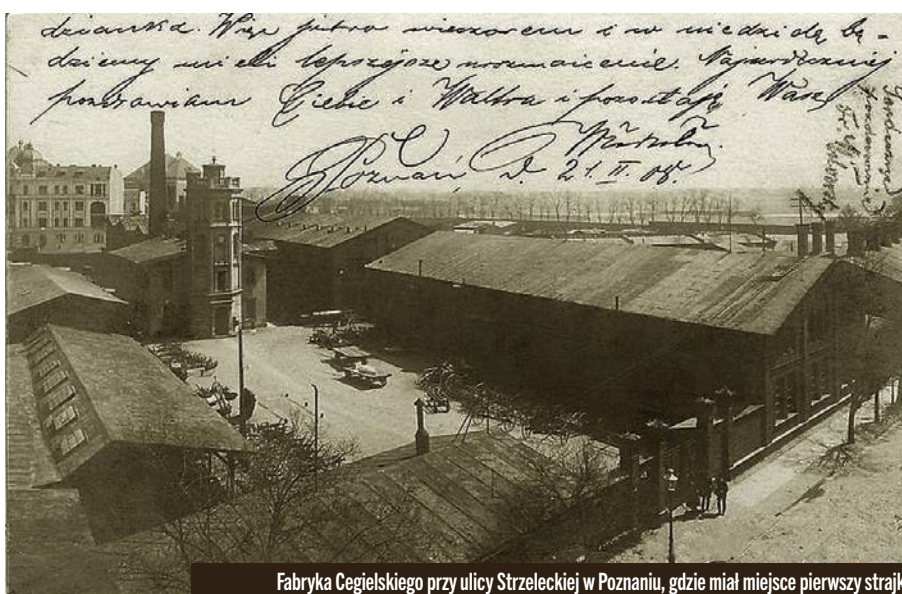 dzianka. Więc jutro wieczorem i w niedzielę bę-
dziemy mieli lepszejsze urozmaicenie. Najserdeczniej
pozdrawiam Ciebie i Waltra i pozostaję Wasz
Poznań d. 21. II. 08.
Fabryka Cegielskiego przy ulicy Strzeleckiej w Poznaniu, gdzie miał miejsce pierwszy strajk